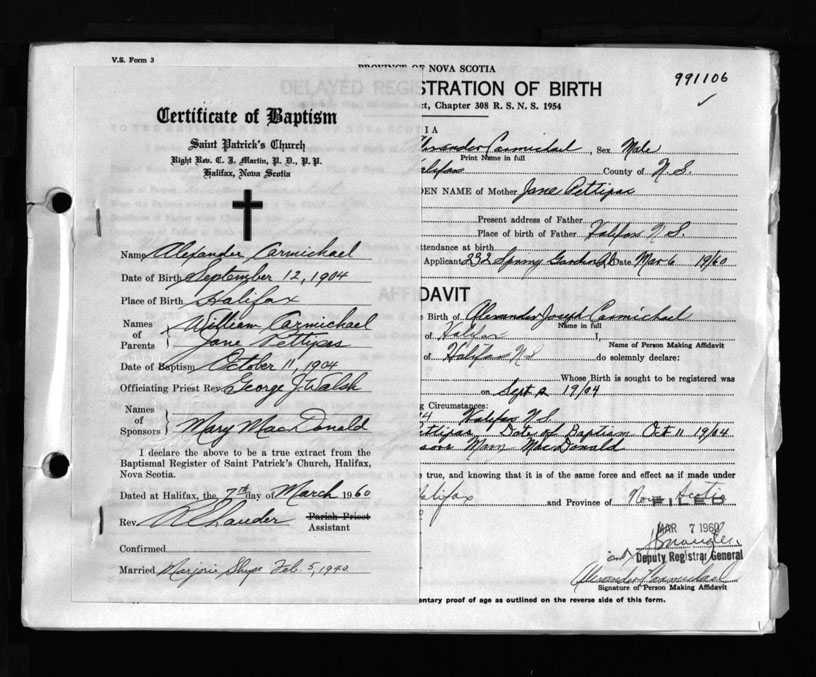 V.S. Form 3
Certificate of Baptism
Saint Patrick's Church
Right Rev. C. J. Martin, P. D., P. P.
Halifax, Nova Scotia
Name Alexander Carmichael
Date of Birth September 12, 1904
Place of Birth Halifax
Names of Parents } William Carmichael
Jane Pettipas
Date of Baptism October 11, 1904
Officiating Priest Rev. George J. Walsh
Names of Sponsors }
Mary MacDonald
I declare the above to be a true extract from the
Baptismal Register of Saint Patrick's Church, Halifax,
Nova Scotia.
Dated at Halifax, the 7th day of March 1960
Rev. Lauder Parish Priest
Assistant
Confirmed
Married Marjorie Feb. 5, 1940
PROVINCE OF NOVA SCOTIA
991106
DELAYED REGISTRATION OF BIRTH
ct, Chapter 308 R. S. N. S. 1954
IA
Alexander Carmichael, Sex Male
Print Name in full
Halifax County of N.S.
DEN NAME of Mother Jane Pettipas
Present address of Father
Place of birth of Father Halifax N.S.
ttendance at birth
Applicant 232 Spring Garden Rd Date Mar 6 19/60
DAVIT
Birth of Alexander Joseph Carmichael
Name in full
of Halifax I,
Name of Person Making Affidavit
of Halifax N.S. do solemnly declare:
Whose Birth is sought to be registered was
on Sept 12 19/04
ng Circumstances:
04 Halifax N.S.
ettipas Date of Baptism Oct 11 19/04
sors Mary MacDonald
e true, and knowing that it is of the same force and effect as if made under
Halifax and Province of Nova Scotia
FILED
MAR 7 1960
Deputy Registrar General
Alexander J Carmichael
Signature of Person Making Affidavit
entary proof of age as outlined on the reverse side of this form.